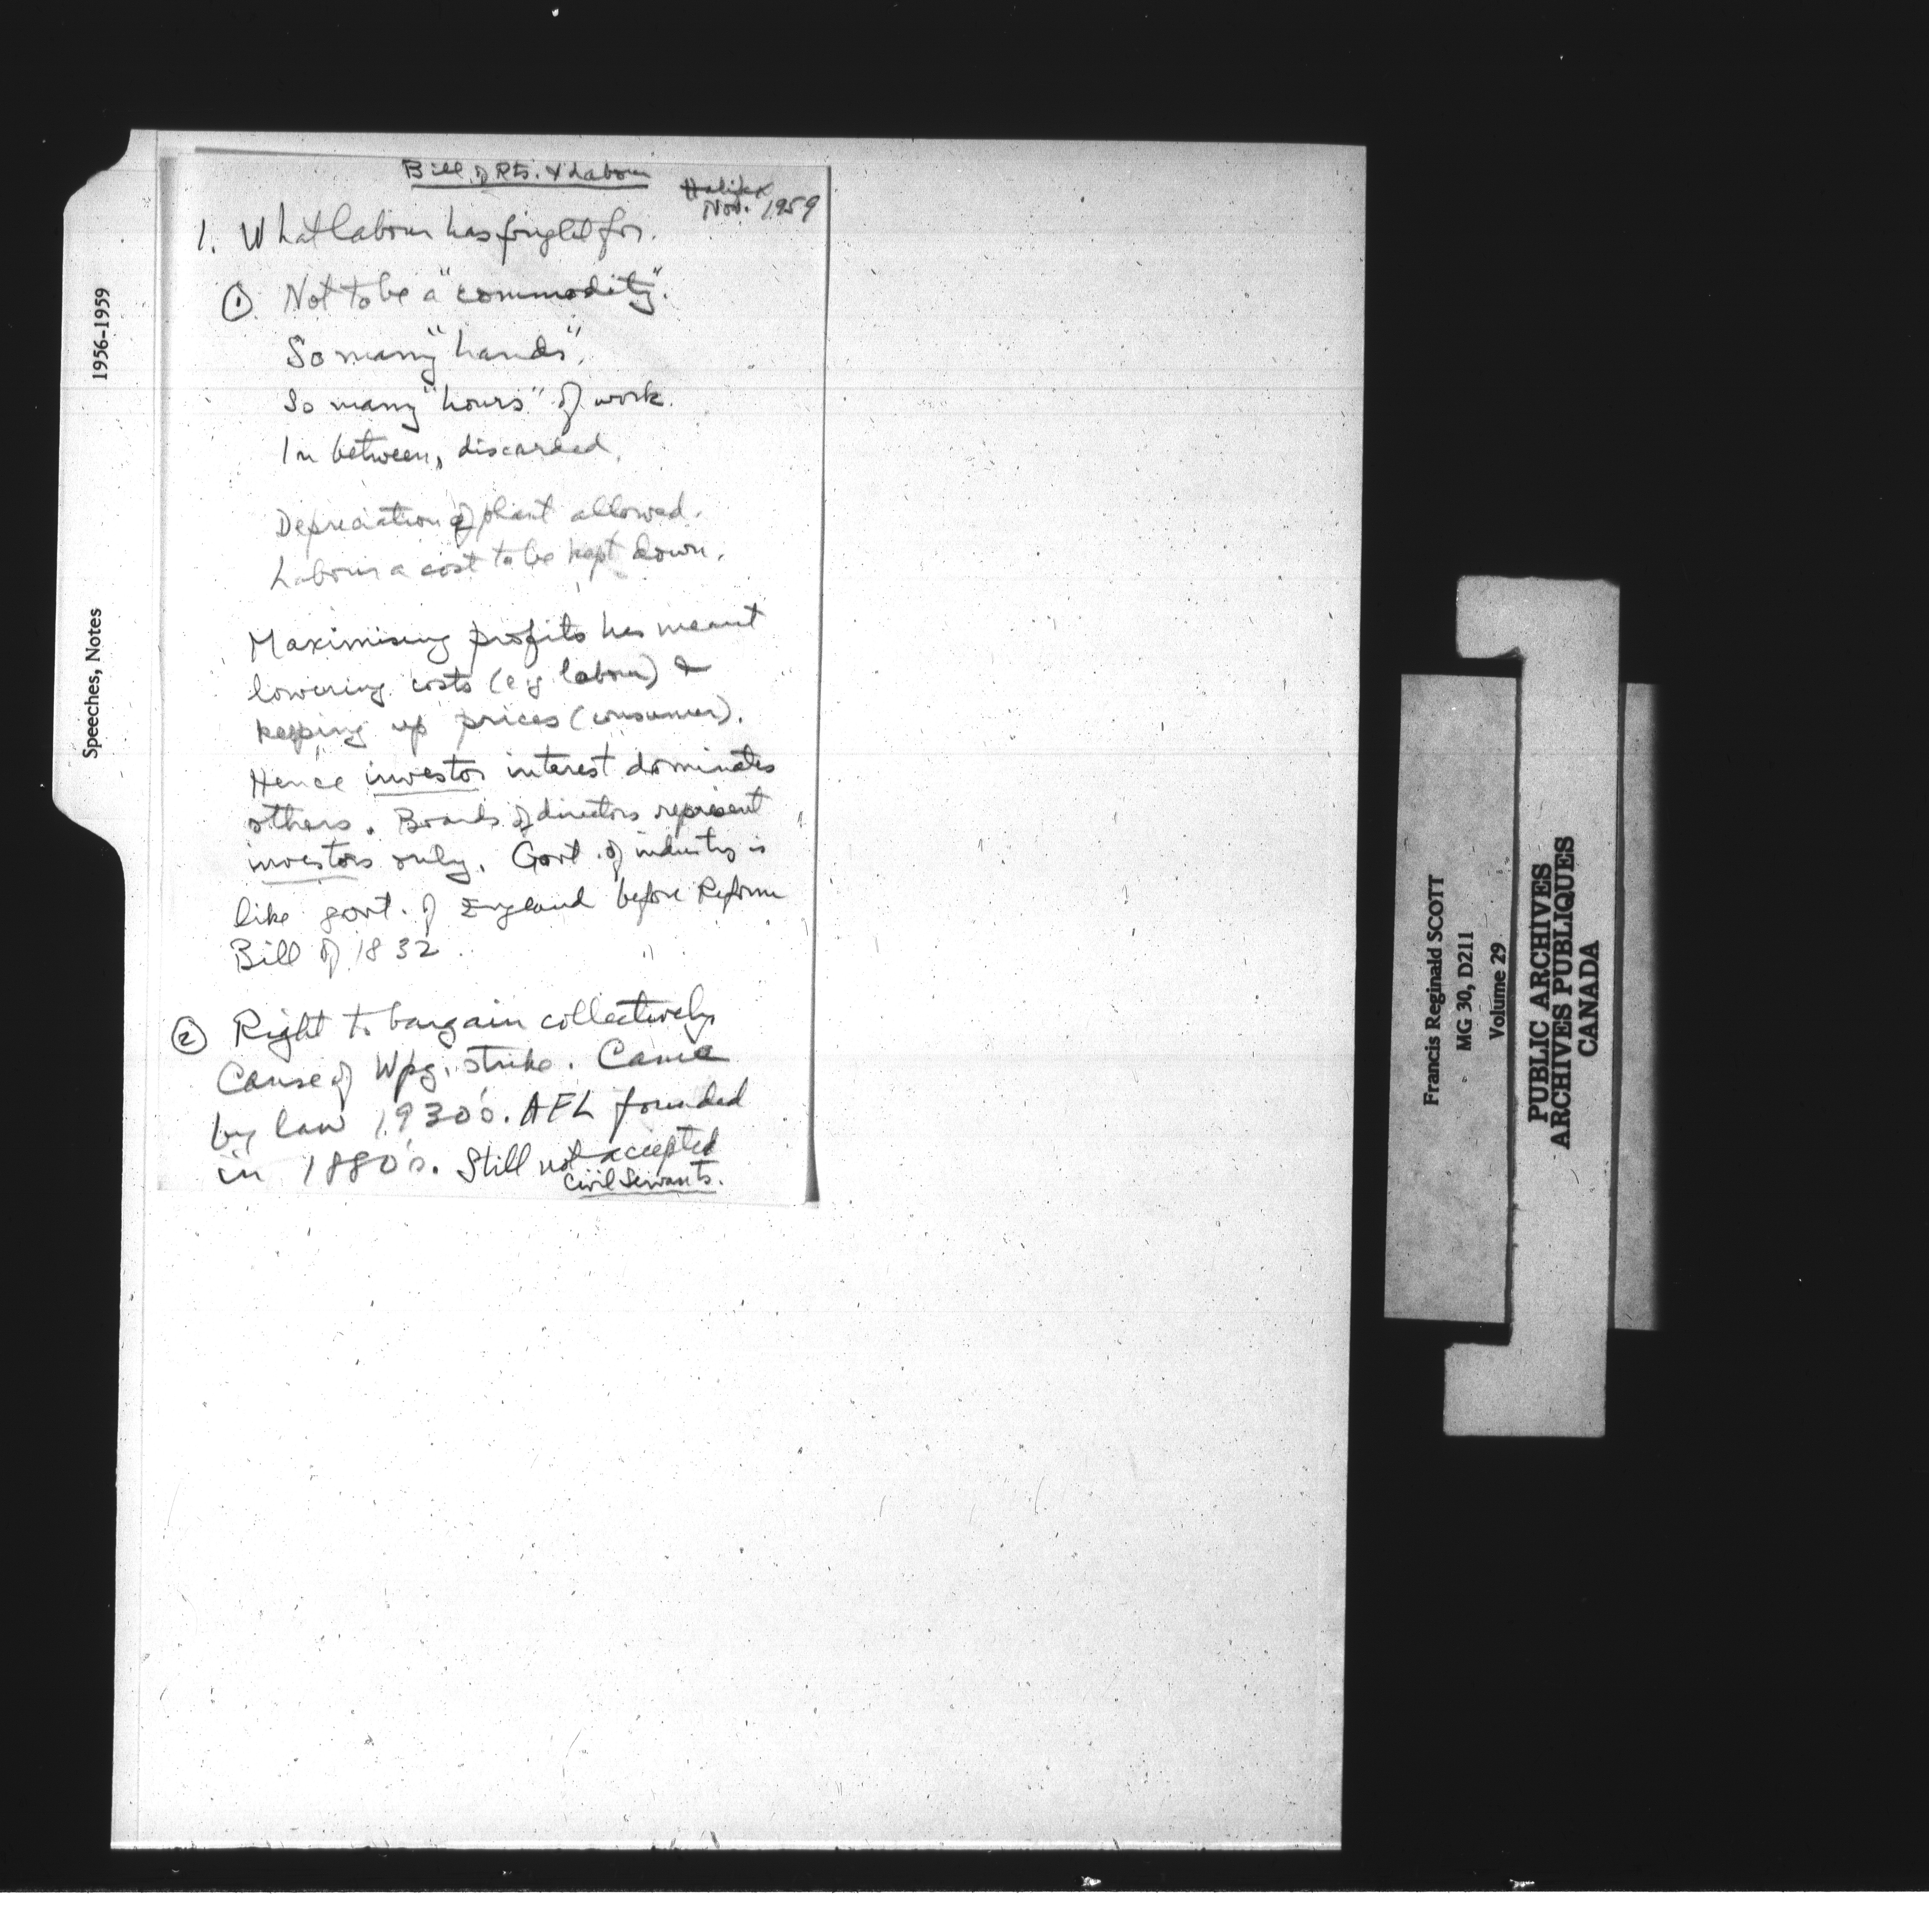 Bill of Rts. & Labour
Halifax
Nov. 1959
1. What labour has fought for.
① Not to be a "commodity".
So many "hands".
So many "hours" of work.
In between, discarded.
Depreciation of plant allowed.
Labour a cost to be kept down.
Maximising profits has meant
lowering costs (e.g labour) &
keeping up prices (consumer).
Hence investor interest dominates
others. Boards of directors represent
investors only. Govt. of industry is
like govt. of England before Reform
Bill of 1832.
② Right to bargain collectively
Cause of Wpg. strike. Came
by law 1930's. AFL founded
in 1880's. Still not accepted
Civil Servants.
Speeches, Notes 1956-1959
Francis Reginald SCOTT
MG 30, D211
Volume 29
PUBLIC ARCHIVES
ARCHIVES PUBLIQUES
CANADA